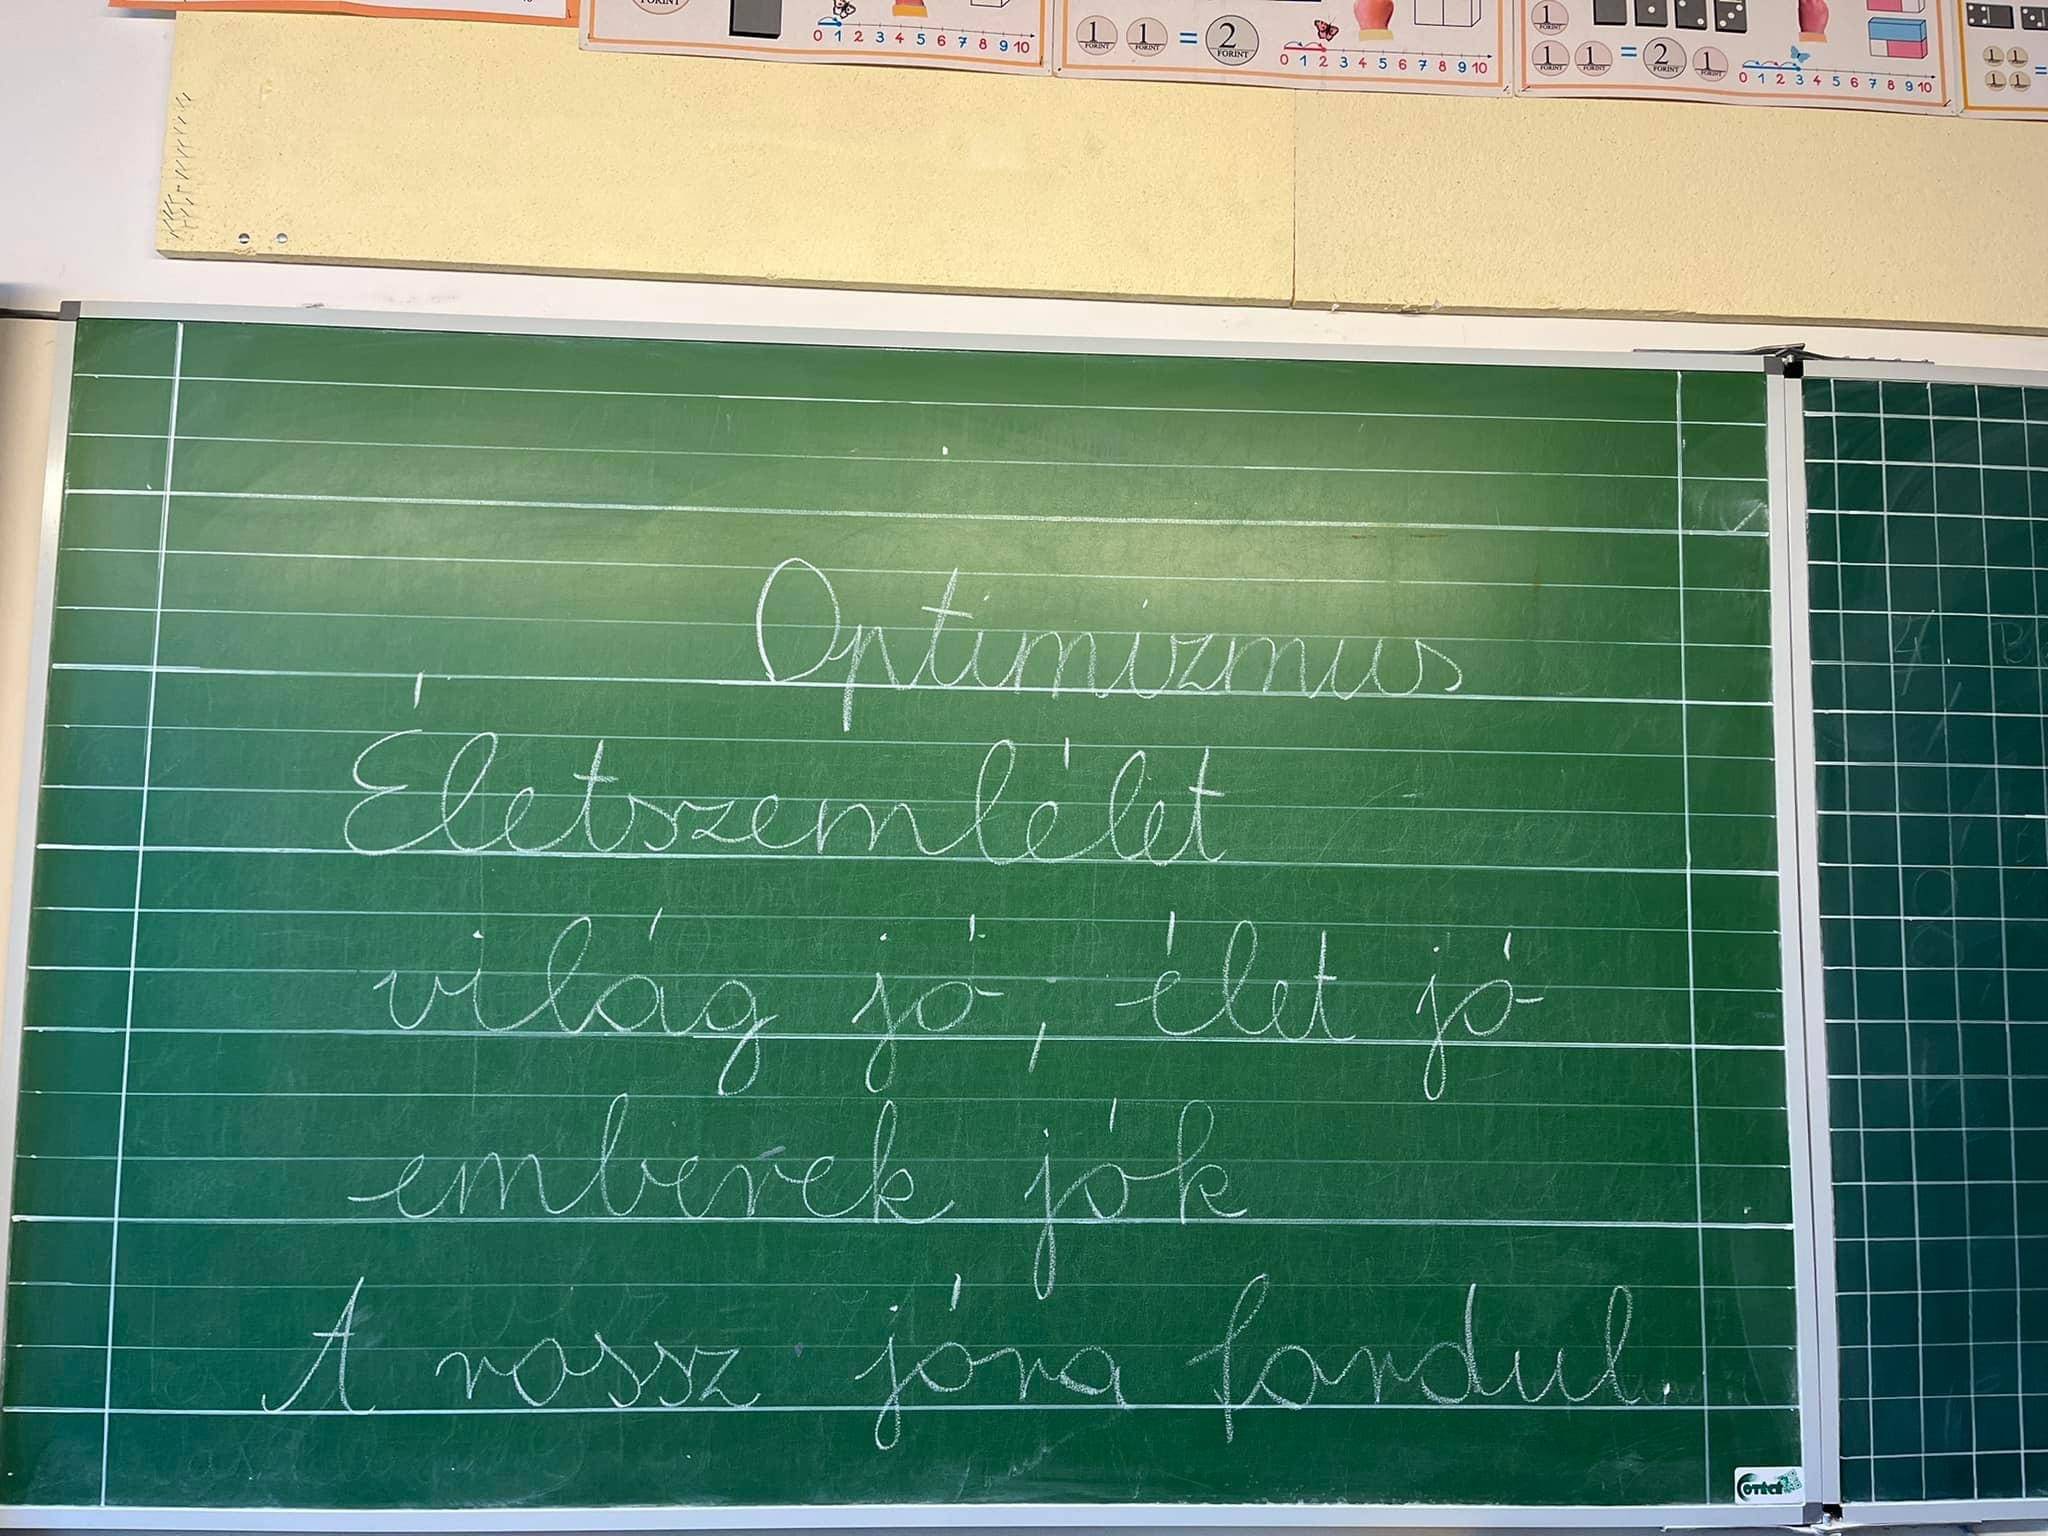 FORINT
0 1 2 3 4 5 6 7 8 9 10
1 FORINT 1 FORINT = 2 FORINT
0 1 2 3 4 5 6 7 8 9 10
1
1 FORINT 1 = 2 FORINT 1
0 1 2 3 4 5 6 7 8 9 10
1 1
1 1 =
Optimizmus
Életszemlélet
világ jó, élet jó
emberek jók
A rossz jóra fordul.